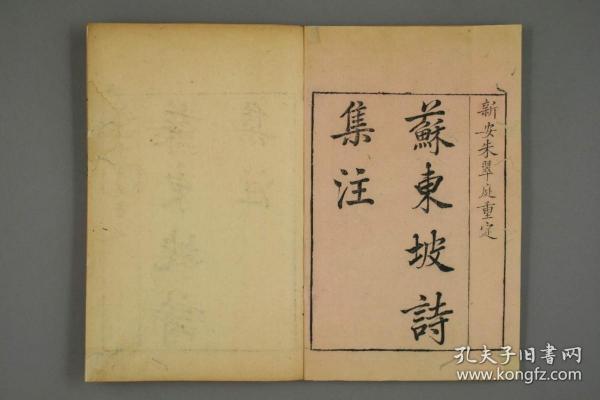 新安朱翠庭重定
蘇東坡詩
集注
孔夫子旧书网
www.kongfz.com